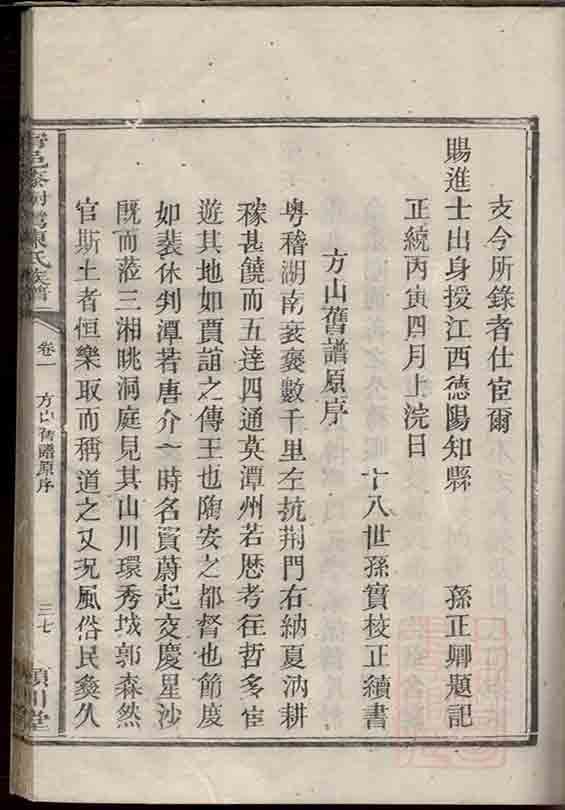 支今所錄者仕宦爾
賜進士出身授江西德陽知縣 孫正卿題記
正統丙寅四月上浣日
十八世孫實校正續書
方山舊譜原序
粵稽湖南袤褒數千里左抗荆門右納夏汭耕
稼甚饒而五達四通莫潭州若歷考往哲多宦
遊其地如賈誼之傅王也陶安之都督也節度
如裴休判潭若唐介一時名賓蔚起交慶星沙
既而蒞三湘眺洞庭見其山川環秀城郭森然
官斯土者恒樂取而稱道之又況風俗民彝久
邑 陳氏族譜
卷一 方山舊譜原序
三七
潁川堂